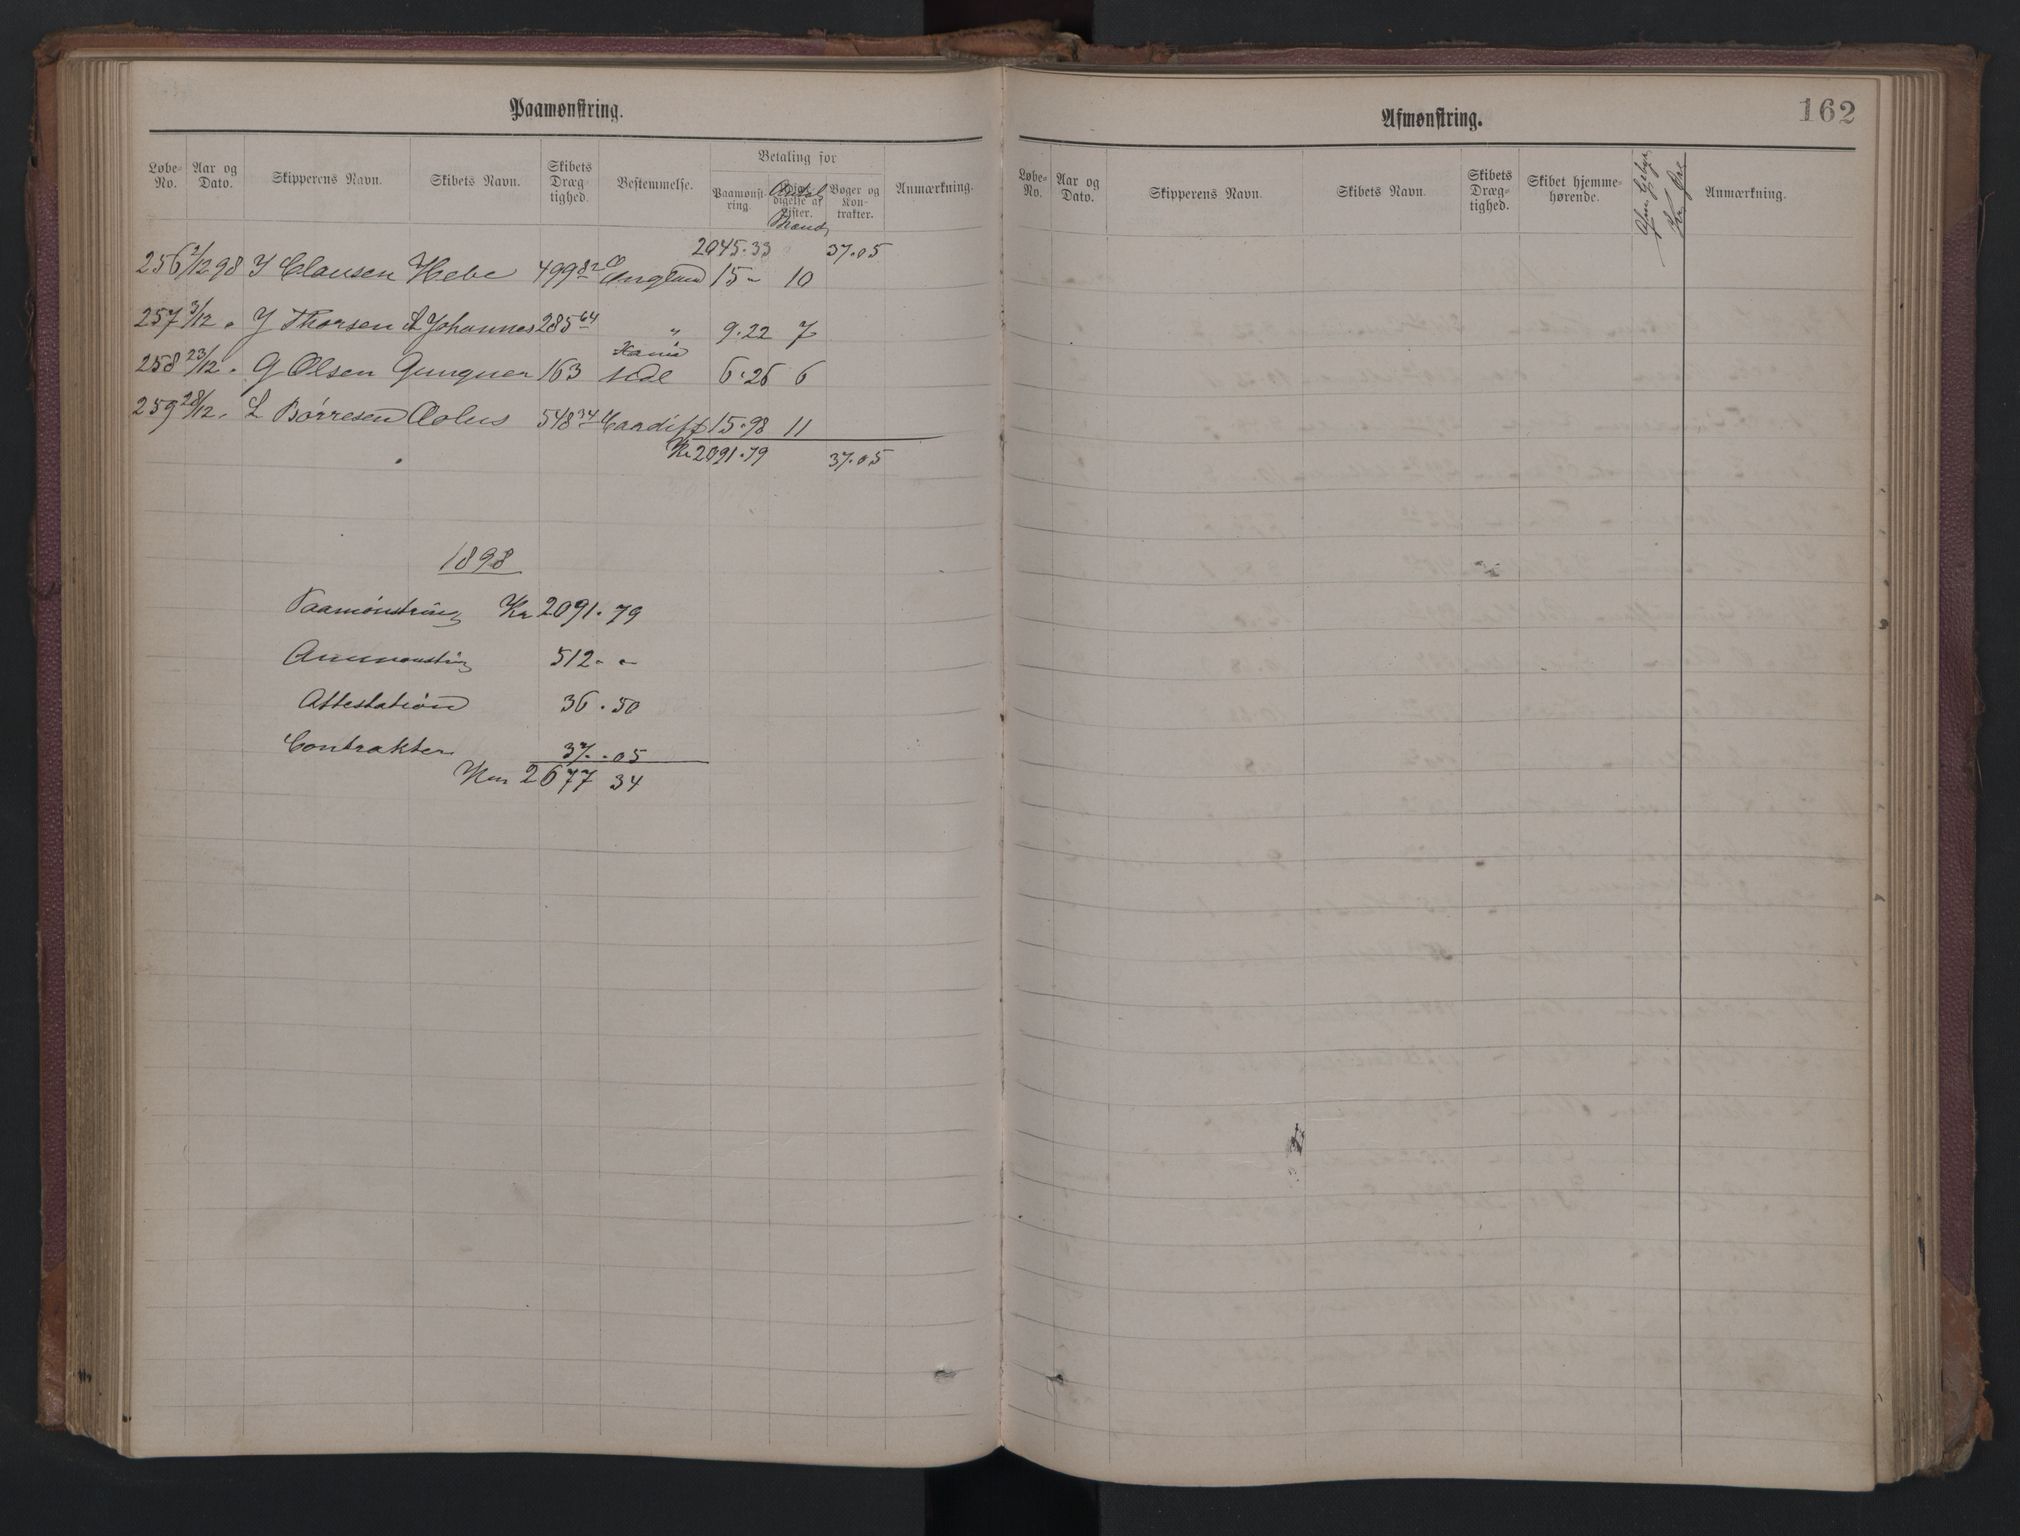 Paamønstring.
Løbe-No. Aar og Dato. Skipperens Navn. Skibets Navn. Skibets Dræg-tighed. Bestemmelse. Betaling for Paamønst-ring. Antal Mand Bøger og Kon-trakter. Anmærkning.
2045.33 37.05
256 2/12 98 J Clausen Hebe 499 82 England 15 - 10
257 3/12 " J Thorsen A Johannes 285 64 " 9.22 7
258 23/12 " G Olsen Gungner 163 6.26 6
259 28/12 " L Börresen Aolus 548 34 Cardiff 15.98 11
Kr 2091.79 37.05
1898
Paamönstring Kr 2091.79
512 - -
Attestation 36.50
Contrakter 37.05
Kr 2677 34
162
Afmønstring.
Løbe-No. Aar og Dato. Skipperens Navn. Skibets Navn. Skibets Dræg-tighed. Skibet hjemme-hørende. Anmærkning.